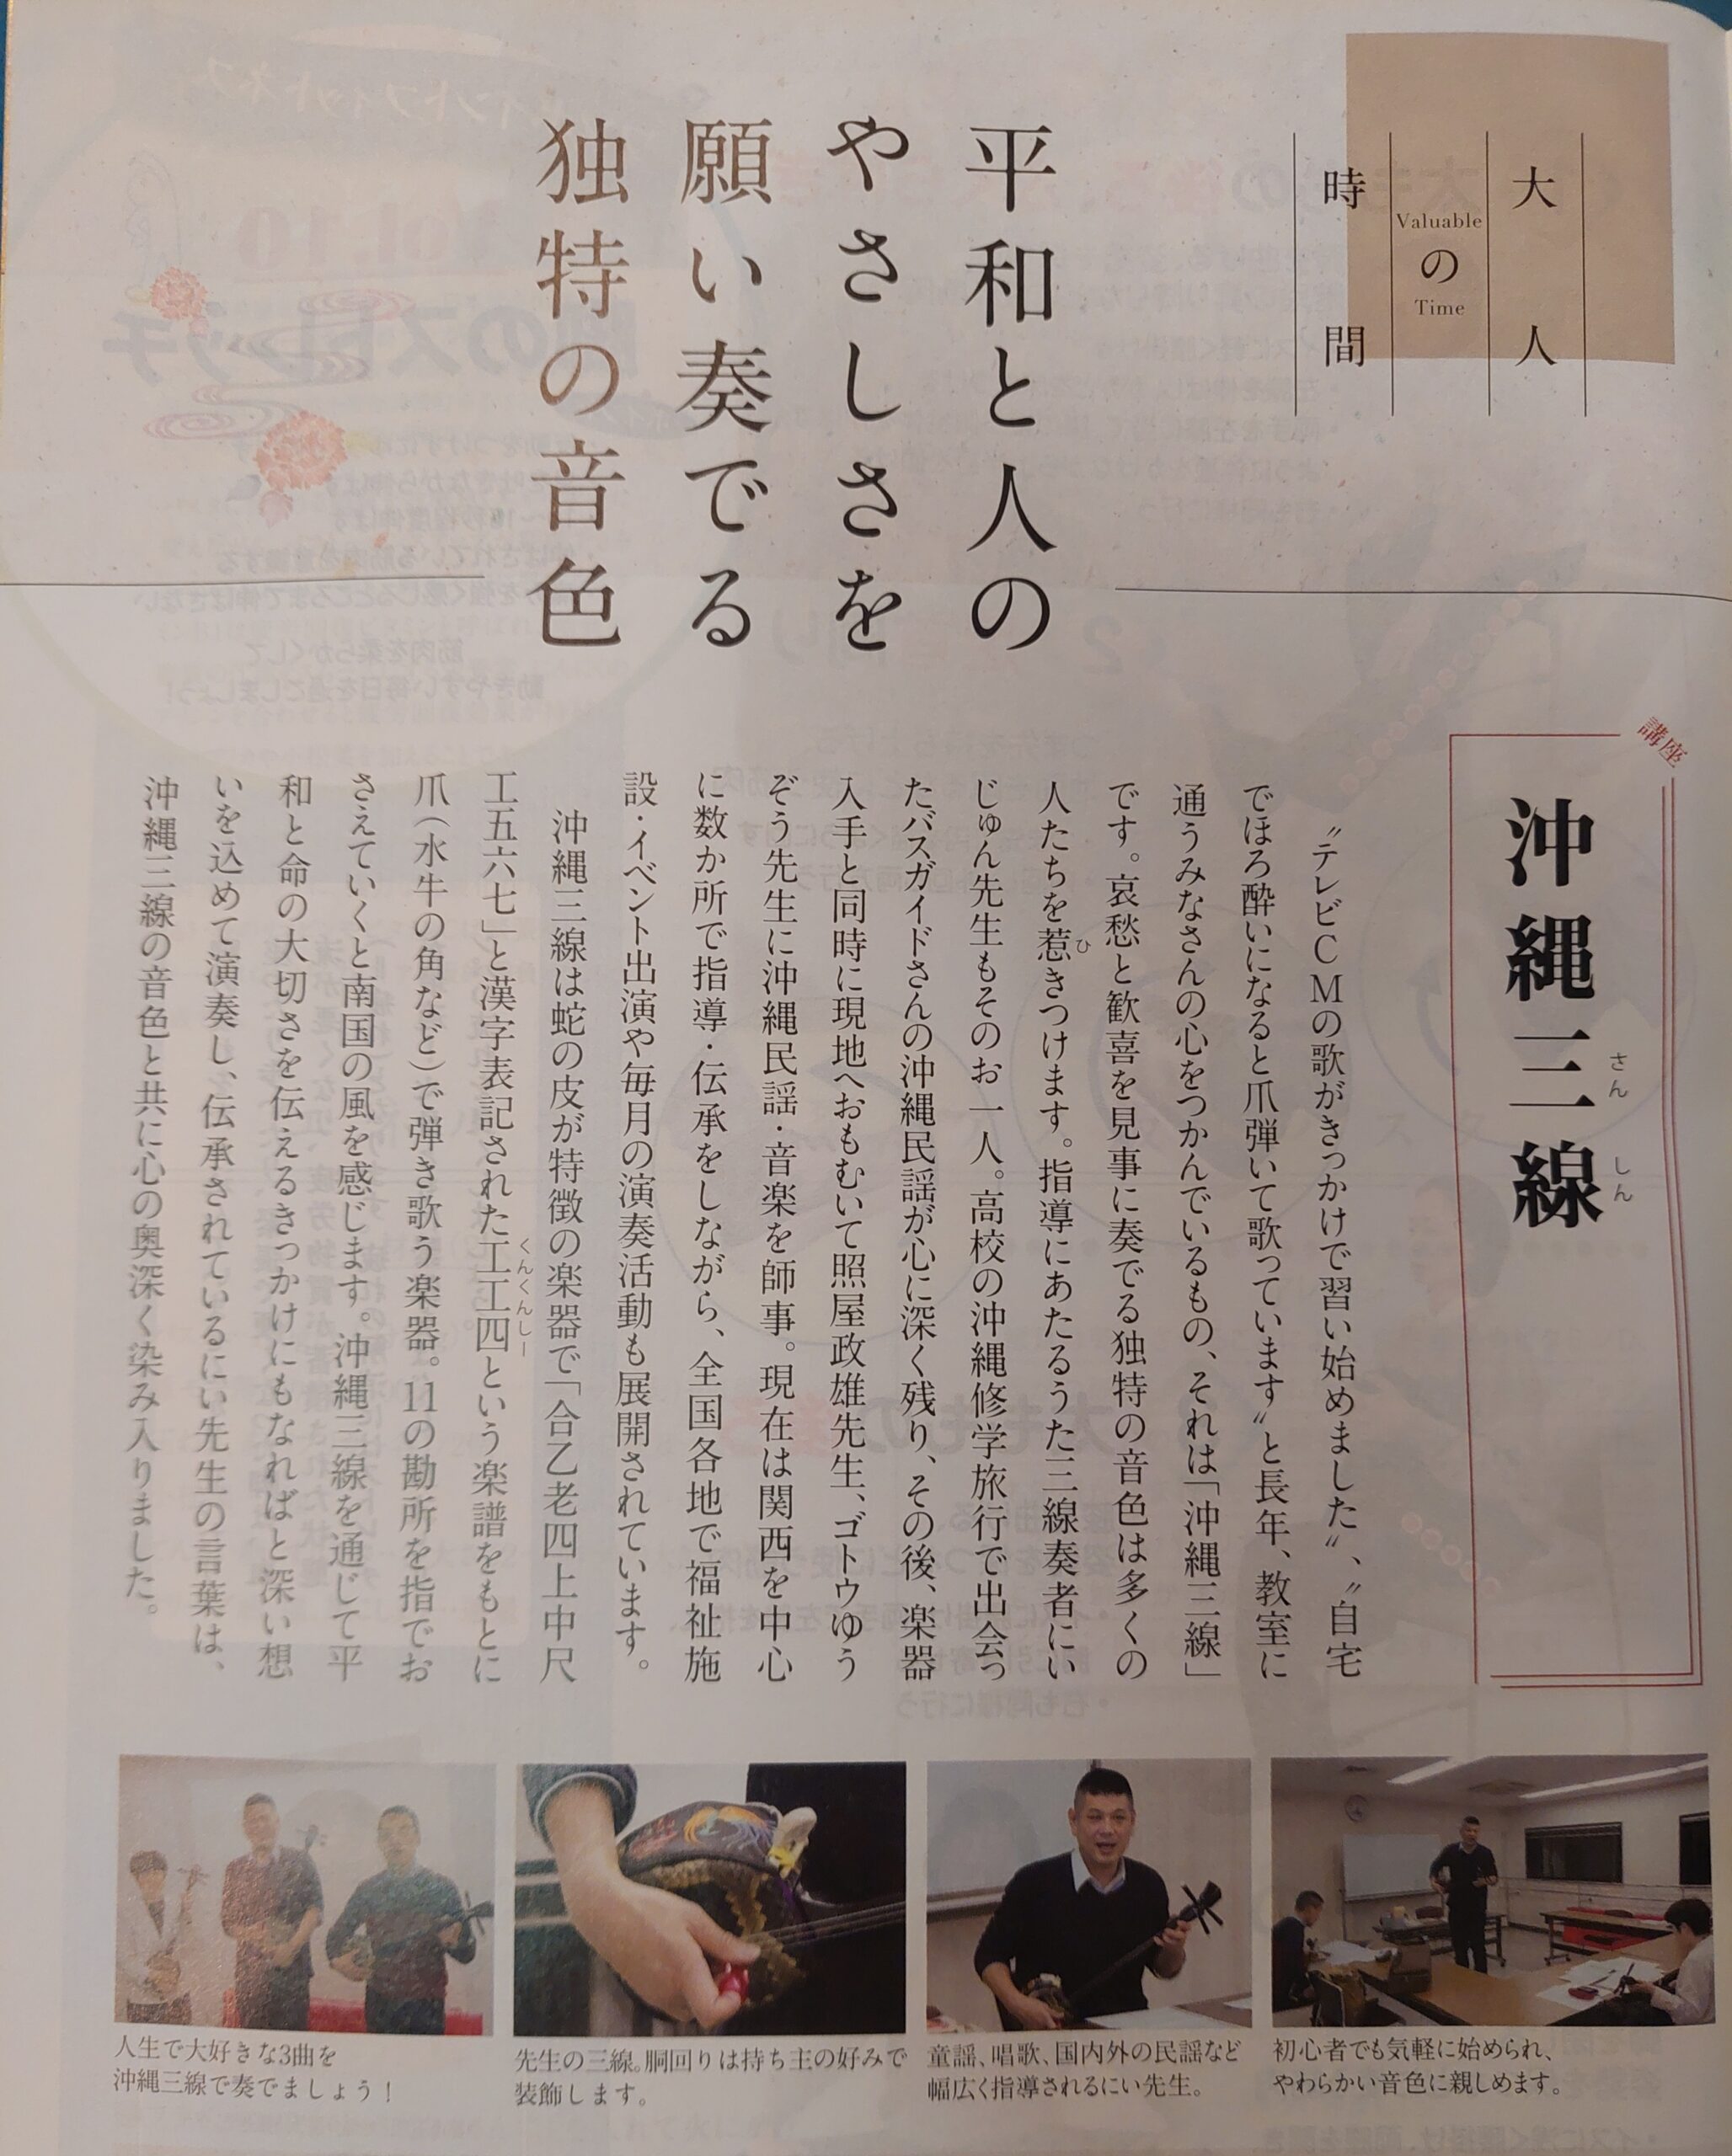 大人
Valuable
の
Time
時間
平和と人の
やさしさを
願い奏でる
独特の音色
講座
沖縄三線
さんしん
〝テレビＣＭの歌がきっかけで習い始めました〟、〝自宅
でほろ酔いになると爪弾いて歌っています〟と長年、教室に
通うみなさんの心をつかんでいるもの、それは「沖縄三線」
です。哀愁と歓喜を見事に奏でる独特の音色は多くの
人たちを惹きつけます。指導にあたるうた三線奏者にい
ひ
じゅん先生もそのお一人。高校の沖縄修学旅行で出会っ
たバスガイドさんの沖縄民謡が心に深く残り、その後、楽器
入手と同時に現地へおもむいて照屋政雄先生、ゴトウゆう
ぞう先生に沖縄民謡・音楽を師事。現在は関西を中心
に数か所で指導・伝承をしながら、全国各地で福祉施
設・イベント出演や毎月の演奏活動も展開されています。
沖縄三線は蛇の皮が特徴の楽器で「合乙老四上中尺
工五六七」と漢字表記された工工四という楽譜をもとに
くんくんしー
爪（水牛の角など）で弾き歌う楽器。11の勘所を指でお
さえていくと南国の風を感じます。沖縄三線を通じて平
和と命の大切さを伝えるきっかけにもなればと深い想
いを込めて演奏し、伝承されているにい先生の言葉は、
沖縄三線の音色と共に心の奥深く染み入りました。
初心者でも気軽に始められ、
やわらかい音色に親しめます。
童謡、唱歌、国内外の民謡など
幅広く指導されるにい先生。
先生の三線。胴回りは持ち主の好みで
装飾します。
人生で大好きな3曲を
沖縄三線で奏でましょう！